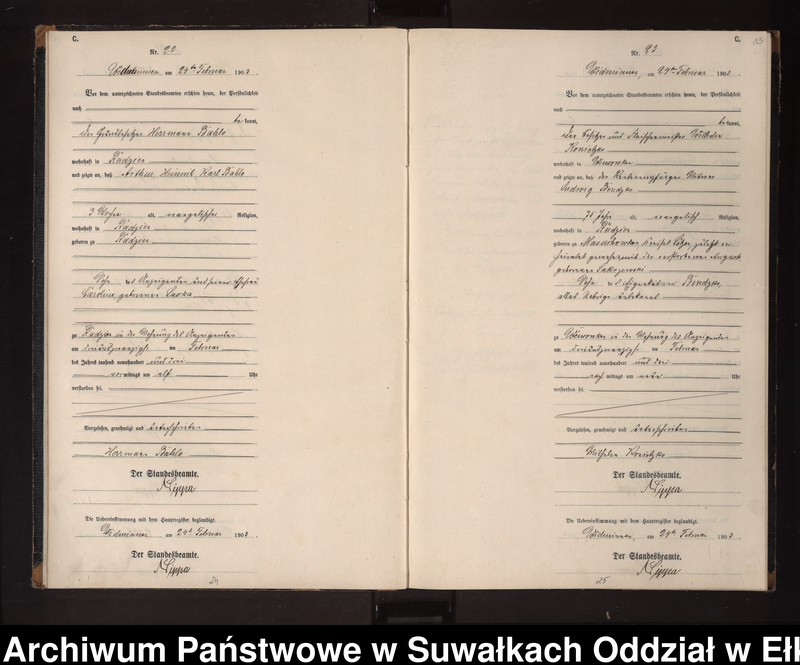 C.
Nr. 22
am 24ten Februar 1903.
Vor dem unterzeichneten Standesbeamten erschien heute, der Persönlichkeit
nach
bekannt,
der Grundbesitzer Herrmann Bahlo
wohnhaft in Radzien
und zeigte an, daß Arthur Heinrich Karl Bahlo
3 Wochen alt, evangelischer Religion,
wohnhaft in Radzien
geboren zu Radzien
Sohn des Anzeigenden und seiner Ehefrau
Caroline geborenen
zu Radzien in der Wohnung des Anzeigenden
am dreiundzwanzigsten Februar
des Jahres tausend neunhundert und drei
vormittags um elf Uhr
verstorben sei.
Vorgelesen, genehmigt und unterschrieben
Herrmann Bahlo
Der Standesbeamte.
Lippa
Die Uebereinstimmung mit dem Hauptregister beglaubigt.
Widminnen am 24ten Februar 1903.
Der Standesbeamte.
Lippa
24
C.
Nr. 23
Widminnen, am 24ten Februar 1903.
Vor dem unterzeichneten Standesbeamten erschien heute, der Persönlichkeit
nach
bekannt,
der Besitzer und Fleischermeister
Konietzko
wohnhaft in
und zeigte an, daß der
Ludwig Bendzko
75 Jahr alt, evangelisch Religion,
wohnhaft in Radzien
geboren zu Kreises Lötzen zuletzt
verheiratet gewesen mit der verstorbenen
geborenen
Sohn der Bendzko,
zu in der Wohnung des Anzeigenden
am dreiundzwanzigsten Februar
des Jahres tausend neunhundert und drei
nachmittags um neun Uhr
verstorben sei.
Vorgelesen, genehmigt und unterschrieben
Wilhelm Konietzko
Der Standesbeamte.
Lippa
Die Uebereinstimmung mit dem Hauptregister beglaubigt.
Widminnen, am 24ten Februar 1903.
Der Standesbeamte.
Lippa
25
Archiwum Państwowe w Suwałkach Oddział w Ełk